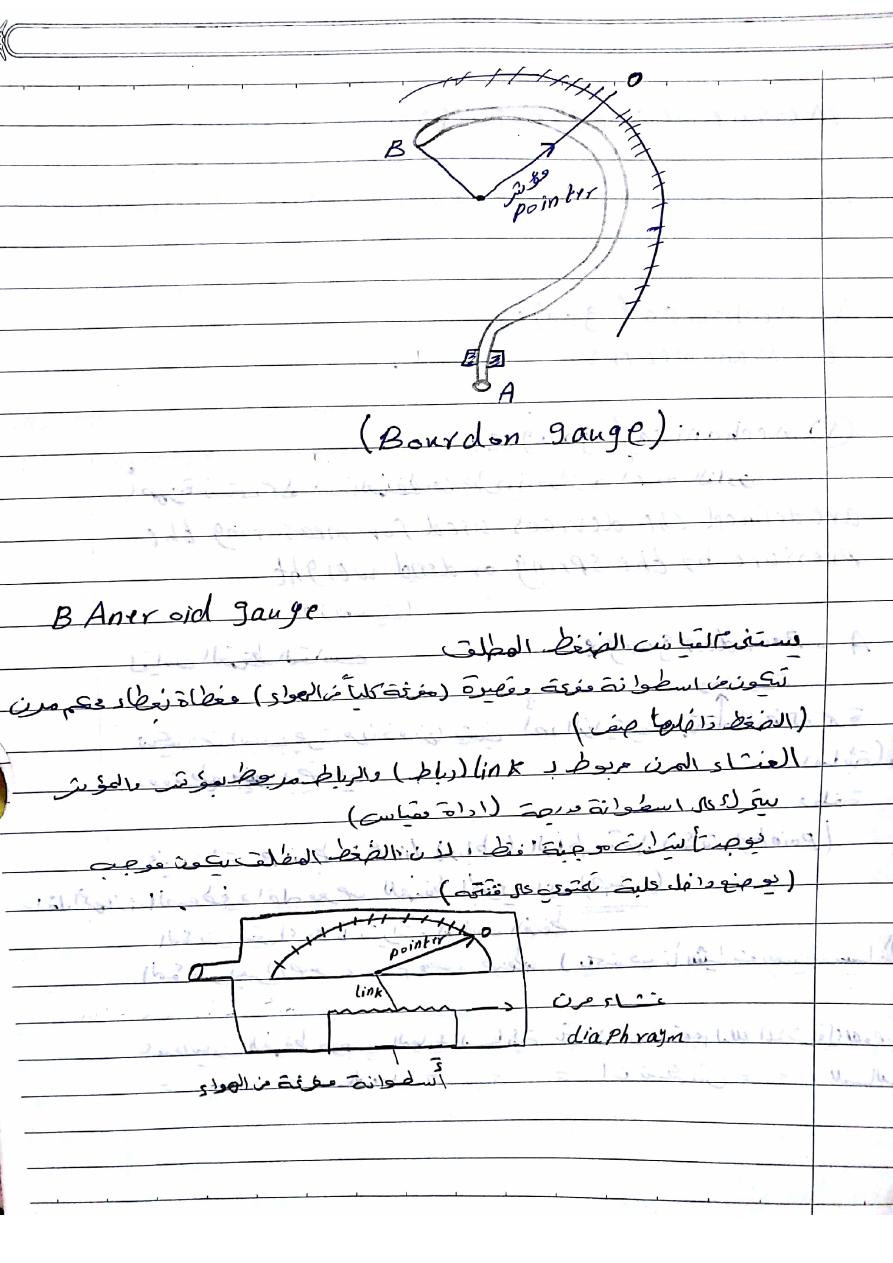 O
B
مؤشر
pointer
A
(Bourdon gauge)
B Aneroid gauge
يستخدم لقياس الضغط المطلق
تتكون من اسطوانة مفرغة وقصيرة (مفرغة كلياً من الهواء) مغطاة بغطاء محكم مرن
(الضغط داخلها صفر)
الغشاء المرن مربوط بـ link (رباط) والرباط مربوط بمؤشر والمؤشر
يتحرك على اسطوانة مدرجة (اداة مقياس)
يوجد تأشيرات موجبة فقط، لأن الضغط المطلق يكون موجب
(يوضع داخل علبة تحتوي على فتحة)
O
pointer
link
غشاء مرن
diaphragm
أسطوانة مفرغة من الهواء